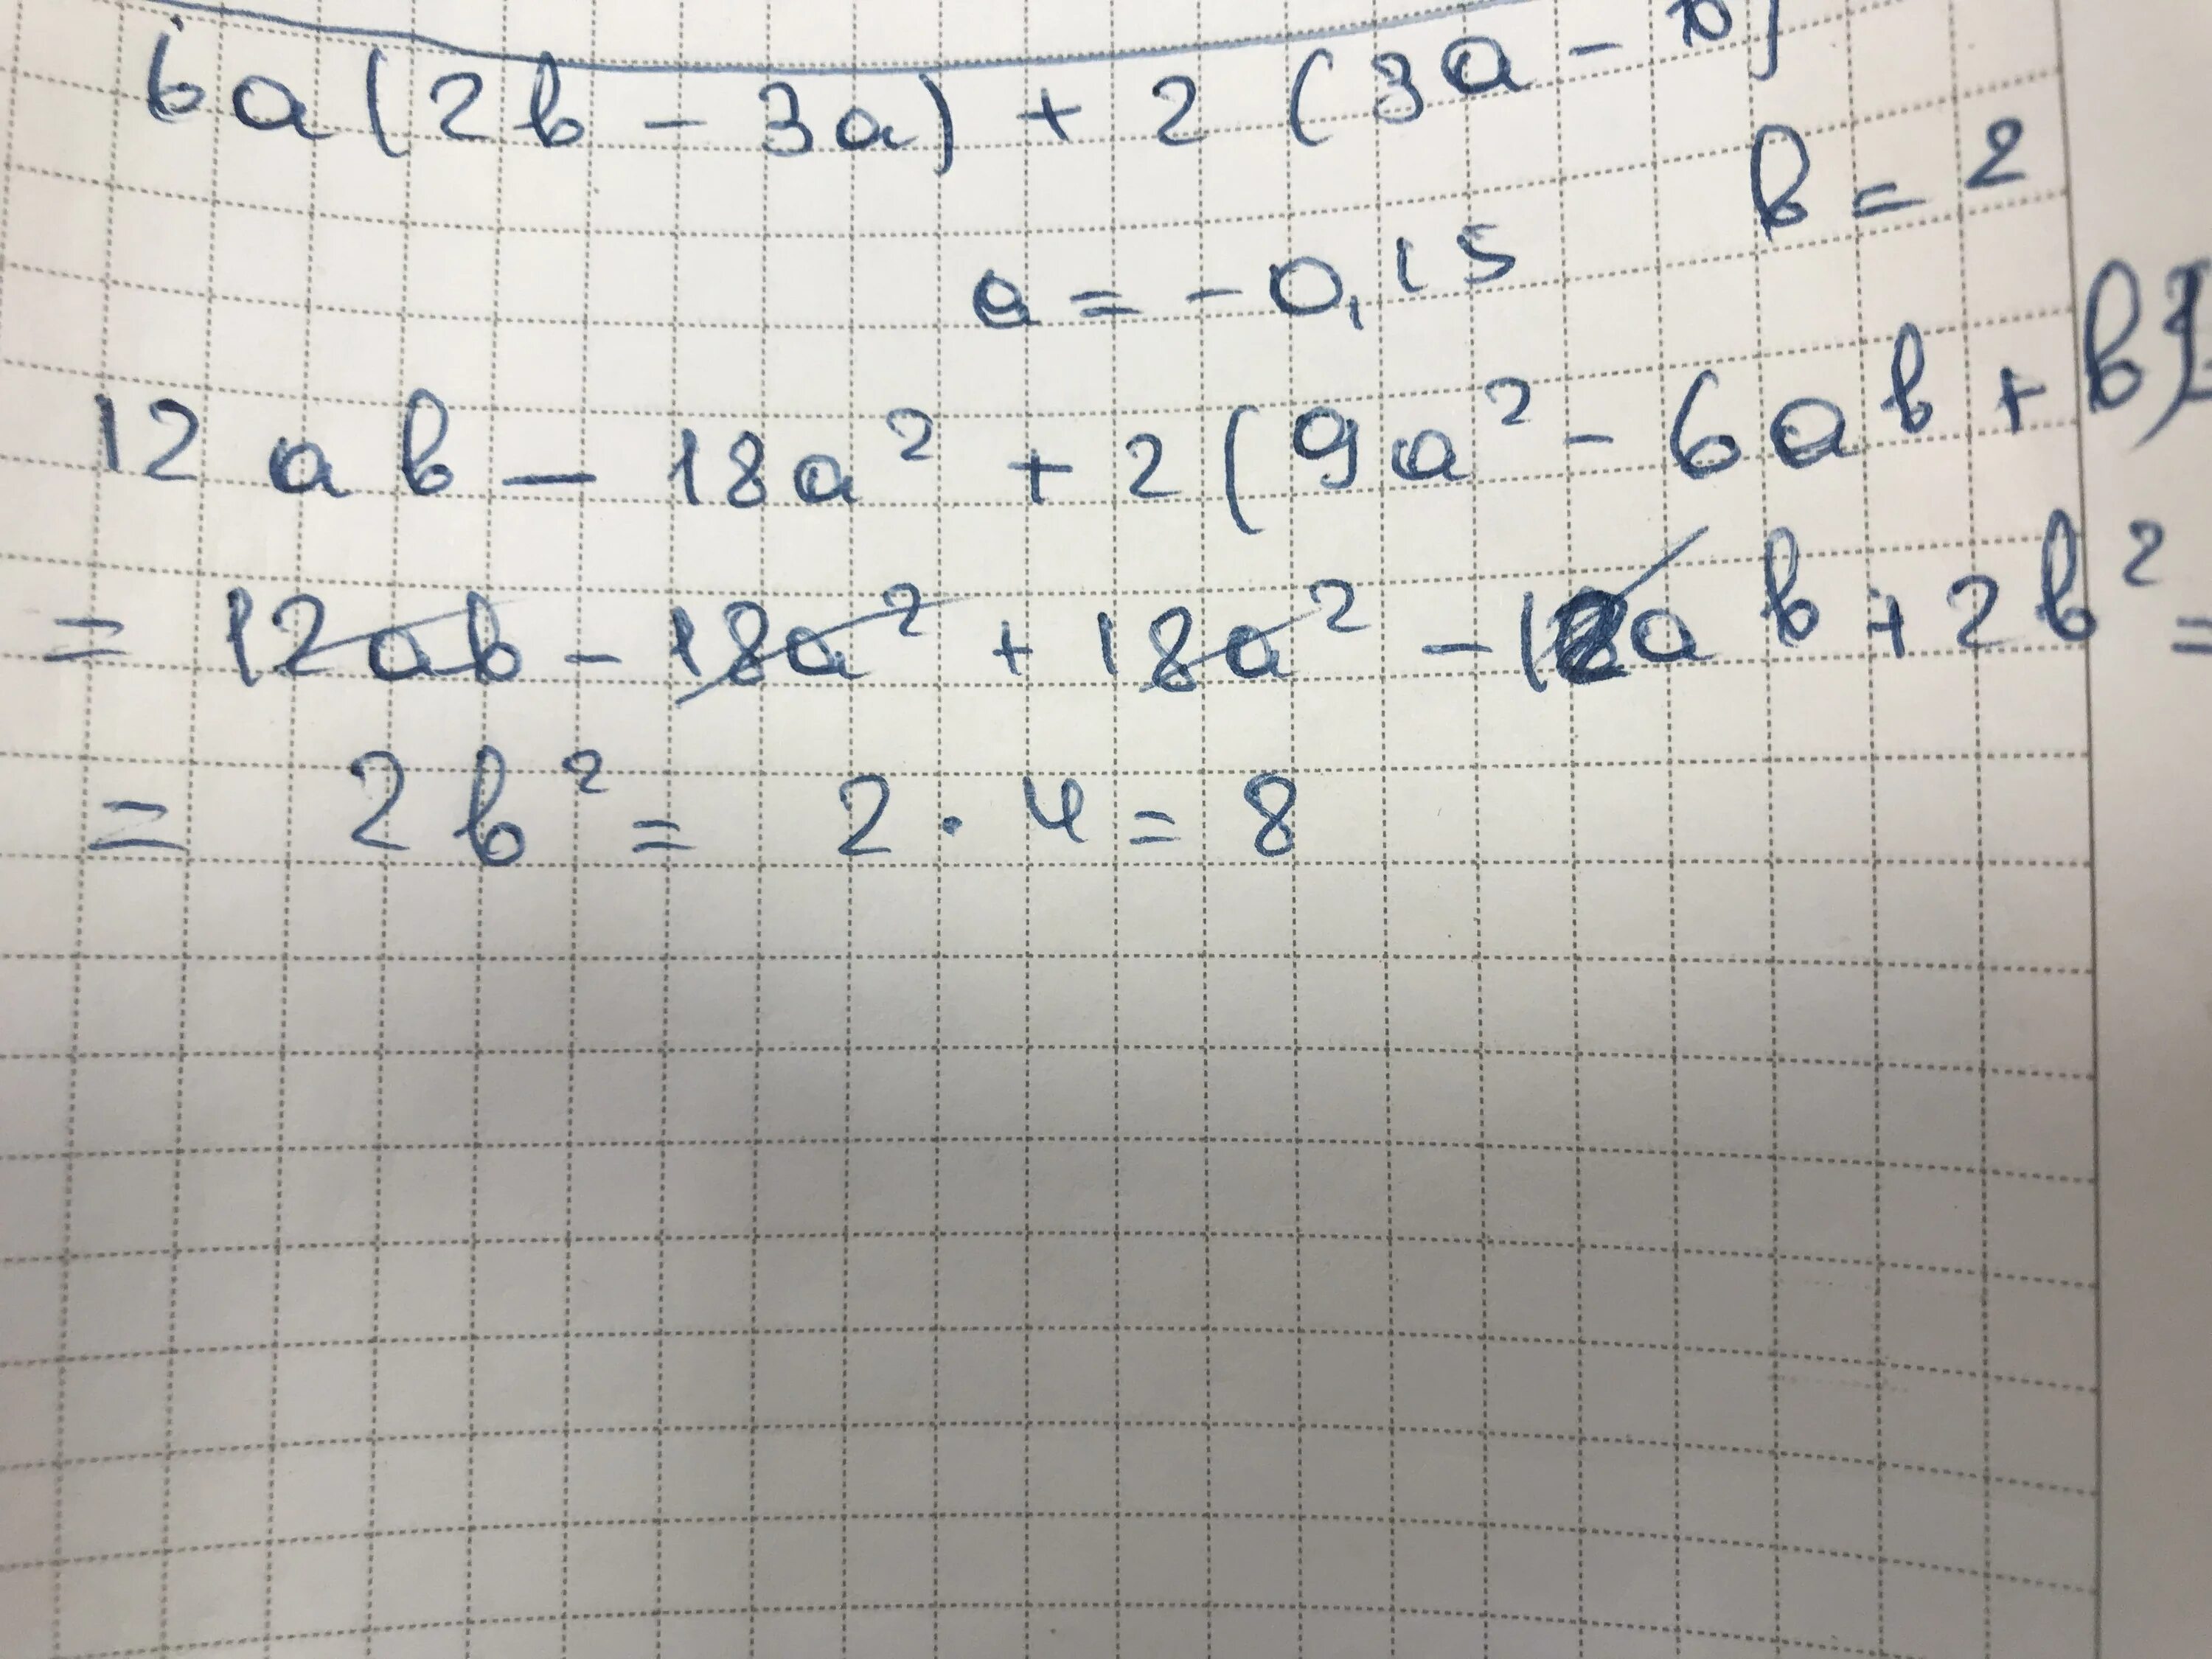 6a(2b - 3a) + 2(3a - b)
a = -0,15 b = 2
12ab - 18a² + 2(9a² - 6ab + b²)
= 12ab - 18a² + 18a² - 12ab + 2b² =
= 2b² = 2 · 4 = 8